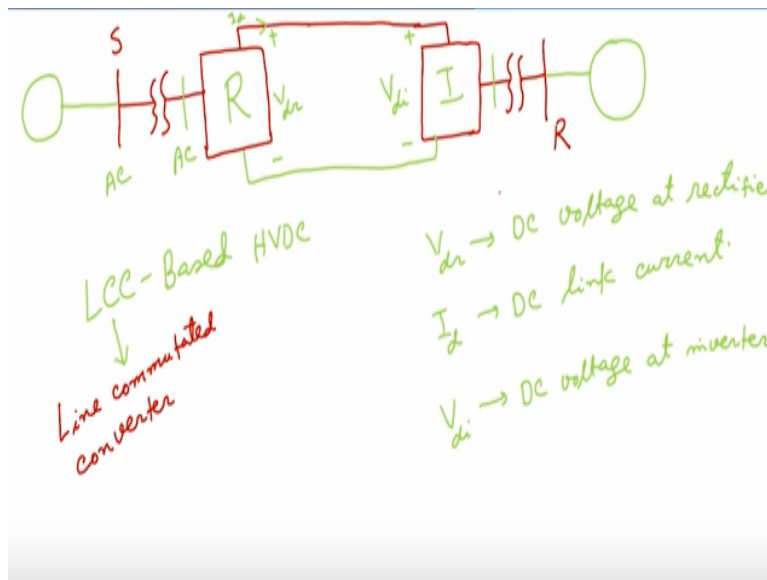 S
Id
+
+
R
Vdr
Vdi
I
-
-
R
AC
AC
LCC-Based HVDC
Line commutated
converter
Vdr → DC voltage at rectifie
Id → DC link current.
Vdi → DC voltage at inverter